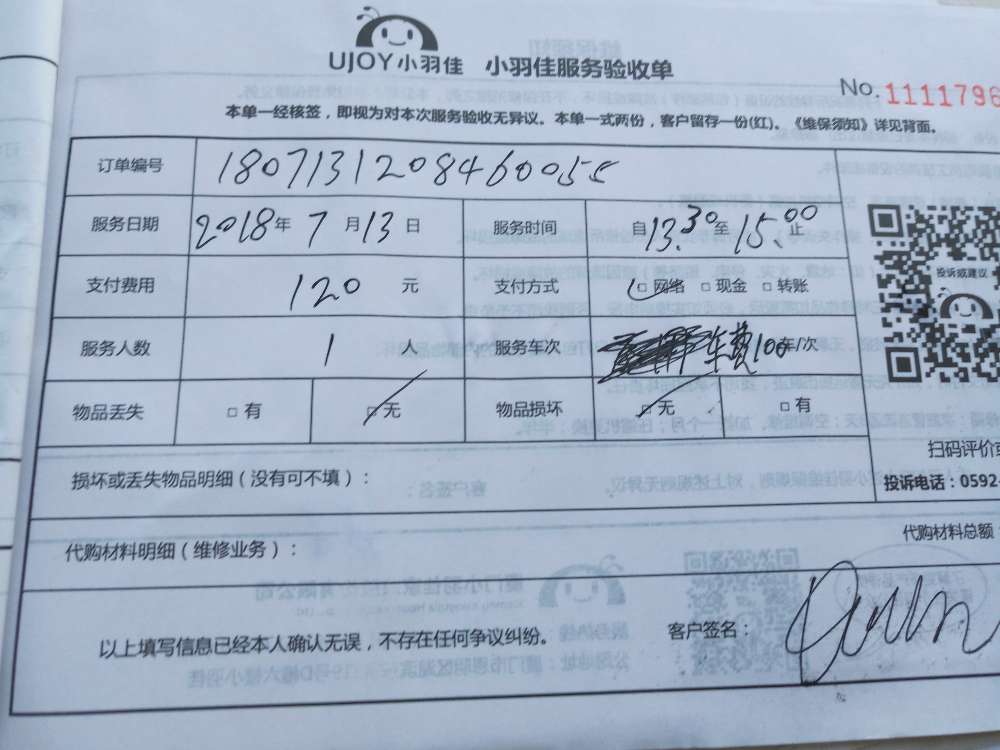 UJOY小羽佳 小羽佳服务验收单
No. 1111796
本单一经核签，即视为对本次服务验收无异议。本单一式两份，客户留存一份(红)。《维保须知》详见背面。
订单编号 1807131208460055
服务日期 2018年 7月13日 服务时间 自13.30至15.00止
投诉或建议
支付费用 120 元 支付方式 □网络 □现金 □转账
服务人数 1 人 服务车次 车费100车/次
物品丢失 □有 □无 物品损坏 □无 □有
扫码评价或
损坏或丢失物品明细（没有可不填）：
投诉电话：0592-
代购材料总额：
代购材料明细（维修业务）：
以上填写信息已经本人确认无误，不存在任何争议纠纷。 客户签名：